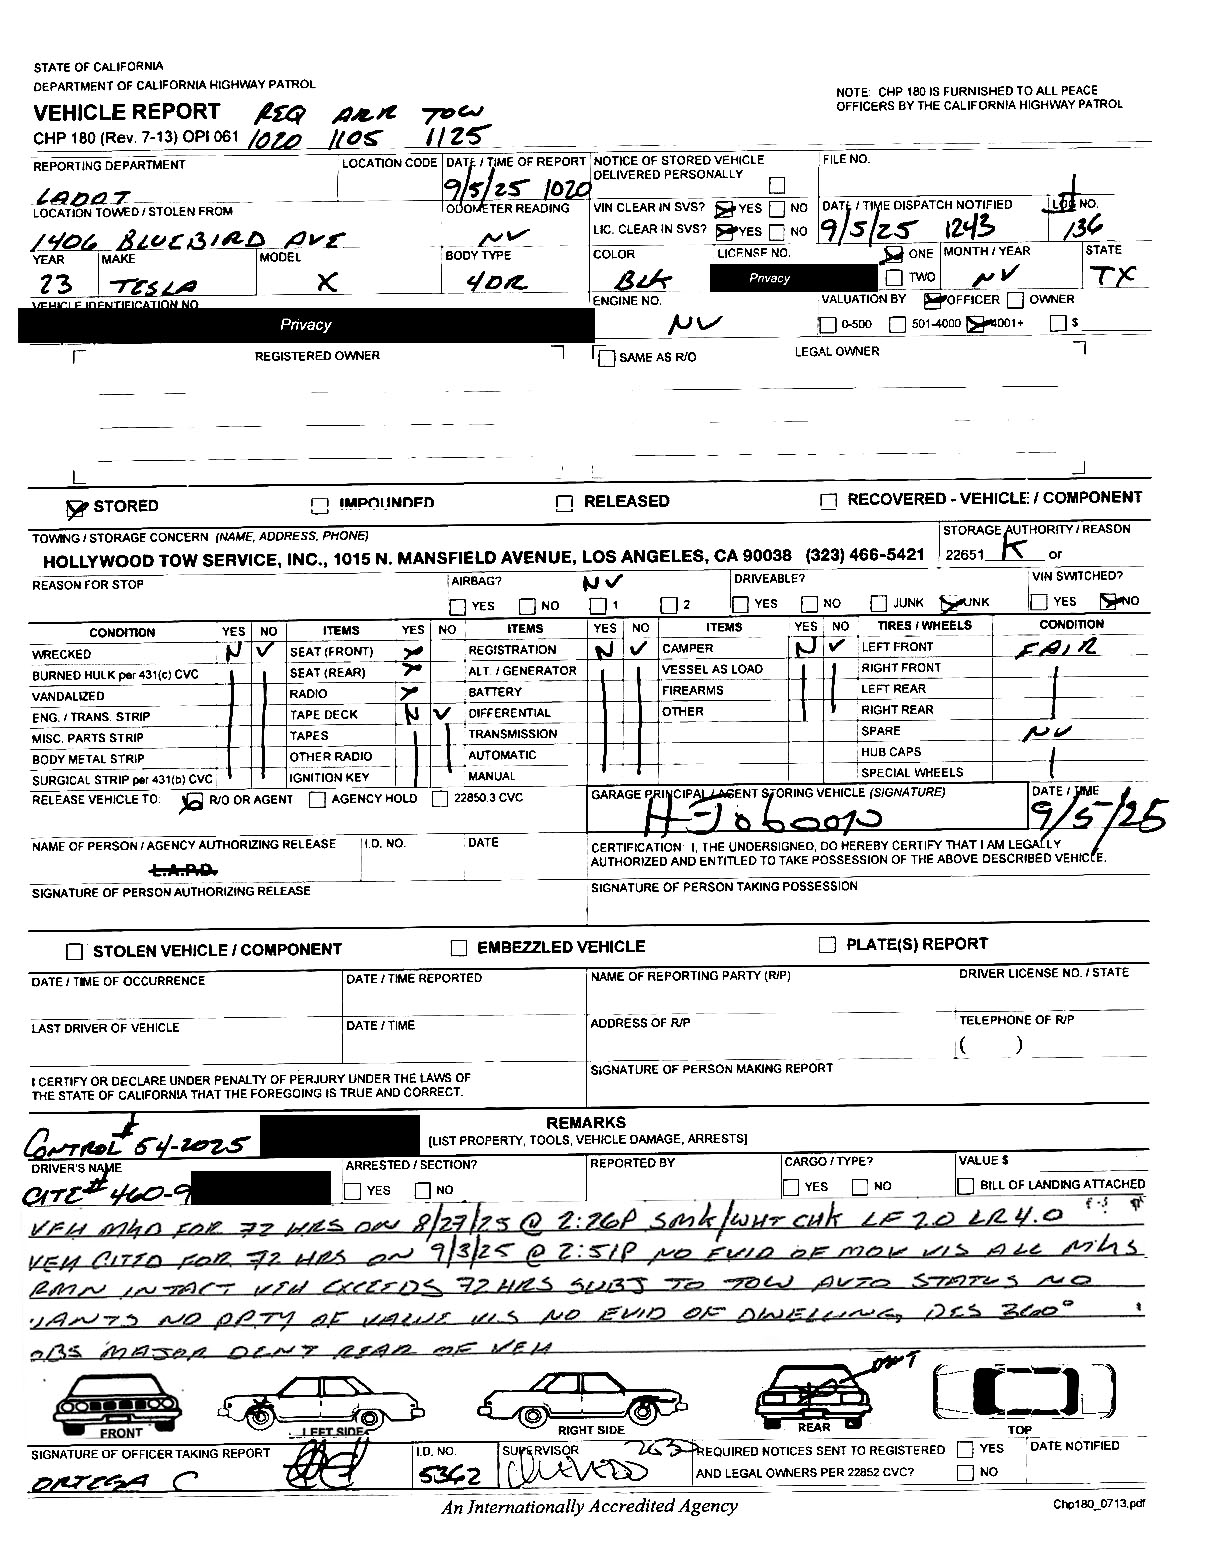 STATE OF CALIFORNIA
DEPARTMENT OF CALIFORNIA HIGHWAY PATROL
NOTE: CHP 180 IS FURNISHED TO ALL PEACE
OFFICERS BY THE CALIFORNIA HIGHWAY PATROL
VEHICLE REPORT REQ ARR TOW
CHP 180 (Rev. 7-13) OPI 061 1020 1105 1125
REPORTING DEPARTMENT LOCATION CODE DATE / TIME OF REPORT NOTICE OF STORED VEHICLE DELIVERED PERSONALLY FILE NO.
LADOT 9/5/25 1020
LOCATION TOWED / STOLEN FROM ODOMETER READING VIN CLEAR IN SVS? YES NO DATE / TIME DISPATCH NOTIFIED LOG NO.
1406 BLUEBIRD AVE NV LIC. CLEAR IN SVS? YES NO 9/5/25 1243 136
YEAR MAKE MODEL BODY TYPE COLOR LICENSE NO. ONE MONTH / YEAR STATE
23 TESLA X 4DR BLK Privacy TWO NV TX
VEHICLE IDENTIFICATION NO. ENGINE NO. VALUATION BY OFFICER OWNER
Privacy NV 0-500 501-4000 4001+ $
REGISTERED OWNER SAME AS R/O LEGAL OWNER
STORED IMPOUNDED RELEASED RECOVERED - VEHICLE / COMPONENT
TOWING / STORAGE CONCERN (NAME, ADDRESS, PHONE) STORAGE AUTHORITY / REASON
HOLLYWOOD TOW SERVICE, INC., 1015 N. MANSFIELD AVENUE, LOS ANGELES, CA 90038 (323) 466-5421 22651 K or
REASON FOR STOP AIRBAG? NV DRIVEABLE? VIN SWITCHED?
YES NO 1 2 YES NO JUNK UNK YES NO
CONDITION YES NO ITEMS YES NO ITEMS YES NO ITEMS YES NO TIRES / WHEELS CONDITION
WRECKED N V SEAT (FRONT) X REGISTRATION N V CAMPER N V LEFT FRONT FAIR
BURNED HULK per 431(c) CVC SEAT (REAR) X ALT. / GENERATOR VESSEL AS LOAD RIGHT FRONT
VANDALIZED RADIO X BATTERY FIREARMS LEFT REAR
ENG. / TRANS. STRIP TAPE DECK N V DIFFERENTIAL OTHER RIGHT REAR
MISC. PARTS STRIP TAPES TRANSMISSION SPARE NV
BODY METAL STRIP OTHER RADIO AUTOMATIC HUB CAPS
SURGICAL STRIP per 431(b) CVC IGNITION KEY MANUAL SPECIAL WHEELS
RELEASE VEHICLE TO: R/O OR AGENT AGENCY HOLD 22850.3 CVC GARAGE PRINCIPAL / AGENT STORING VEHICLE (SIGNATURE) DATE / TIME
9/5/25
NAME OF PERSON / AGENCY AUTHORIZING RELEASE I.D. NO. DATE CERTIFICATION: I, THE UNDERSIGNED, DO HEREBY CERTIFY THAT I AM LEGALLY
AUTHORIZED AND ENTITLED TO TAKE POSSESSION OF THE ABOVE DESCRIBED VEHICLE.
L.A.P.D.
SIGNATURE OF PERSON AUTHORIZING RELEASE SIGNATURE OF PERSON TAKING POSSESSION
STOLEN VEHICLE / COMPONENT EMBEZZLED VEHICLE PLATE(S) REPORT
DATE / TIME OF OCCURRENCE DATE / TIME REPORTED NAME OF REPORTING PARTY (R/P) DRIVER LICENSE NO. / STATE
LAST DRIVER OF VEHICLE DATE / TIME ADDRESS OF R/P TELEPHONE OF R/P
( )
I CERTIFY OR DECLARE UNDER PENALTY OF PERJURY UNDER THE LAWS OF
THE STATE OF CALIFORNIA THAT THE FOREGOING IS TRUE AND CORRECT.
SIGNATURE OF PERSON MAKING REPORT
REMARKS
CONTROL # 54-2025 [LIST PROPERTY, TOOLS, VEHICLE DAMAGE, ARRESTS]
DRIVER'S NAME ARRESTED / SECTION? REPORTED BY CARGO / TYPE? VALUE $
CITE# 460-9 YES NO YES NO BILL OF LANDING ATTACHED
VEH MKD FOR 72 HRS ON 8/27/25 @ 2:26P SMK/WHT CHK LF 2.0 LR 4.0
VEH CITED FOR 72 HRS ON 9/3/25 @ 2:51P NO EVID OF MOV VIS ALL MKS
RMN INTACT VEH EXCEEDS 72 HRS SUBJ TO TOW AUTO STATUS NO
WANTS NO PRTY OF VALUE VIS NO EVID OF DWELLING, DES 360°
OBS MAJOR DENT REAR OF VEH
DENT
FRONT LEFT SIDE RIGHT SIDE REAR TOP
SIGNATURE OF OFFICER TAKING REPORT I.D. NO. SUPERVISOR REQUIRED NOTICES SENT TO REGISTERED YES DATE NOTIFIED
ORTEGA C 5362 AND LEGAL OWNERS PER 22852 CVC? NO
An Internationally Accredited Agency
Chp180_0713.pdf